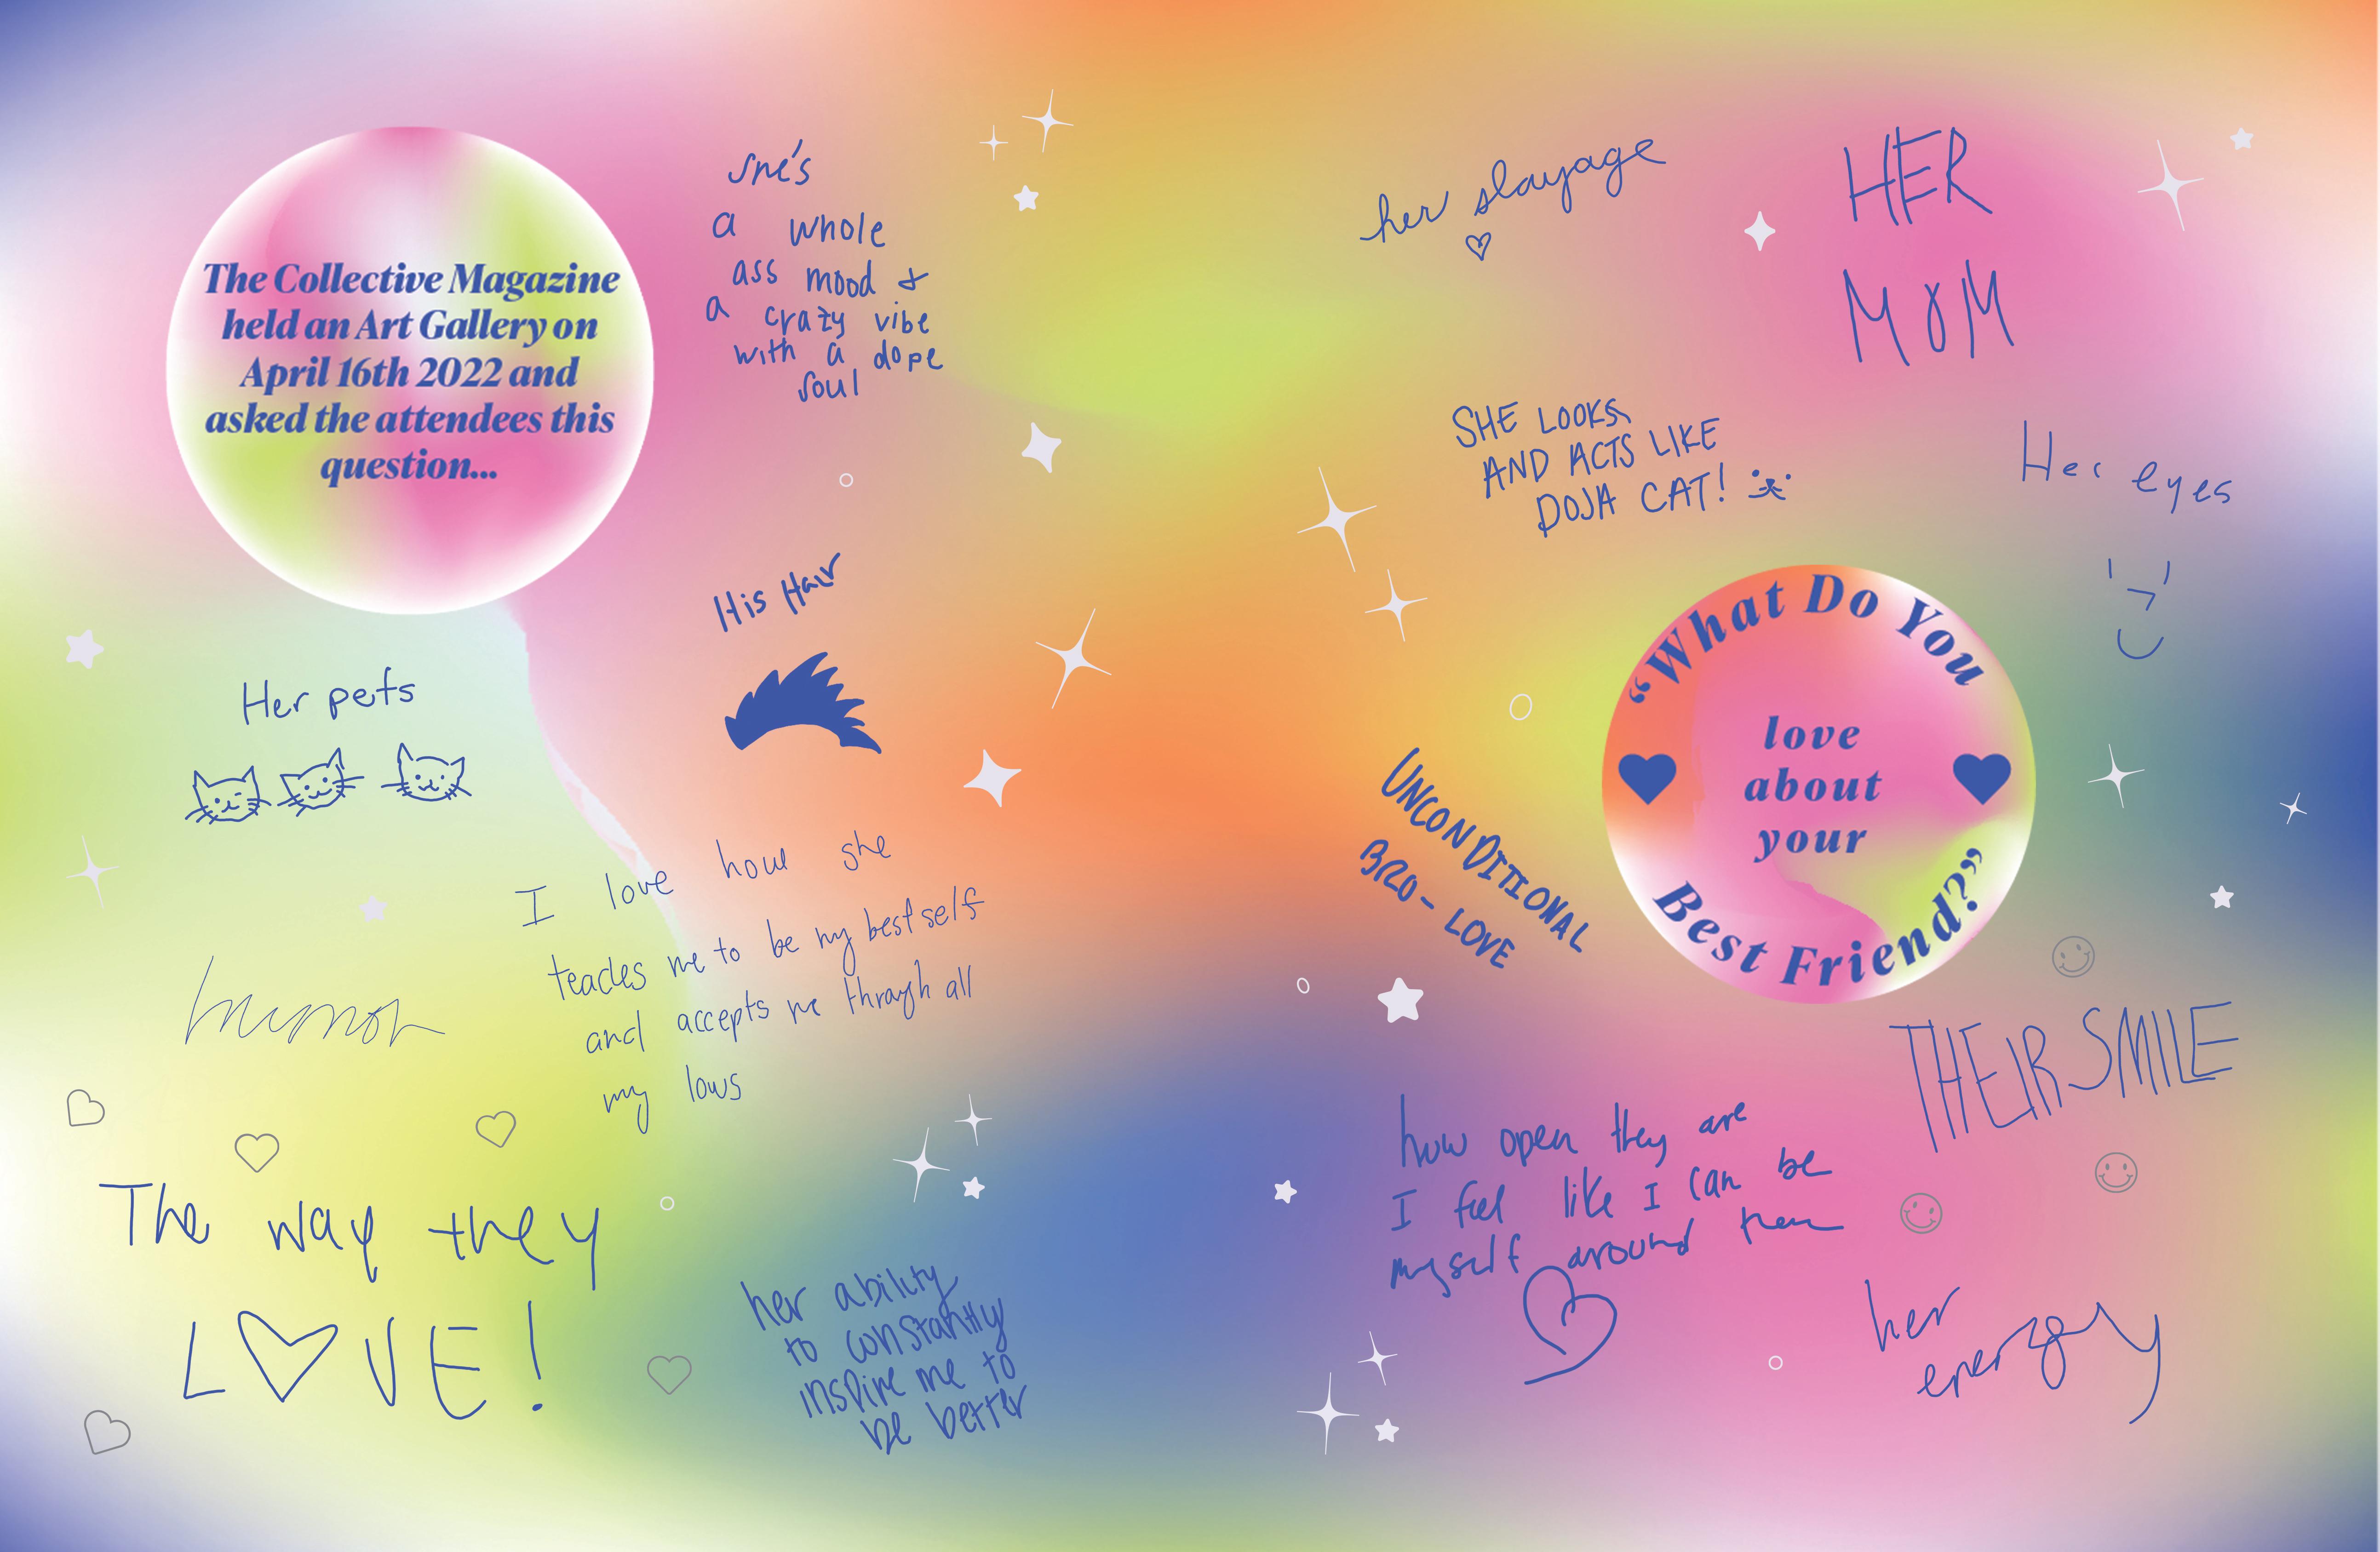 The Collective Magazine
held an Art Gallery on
April 16th 2022 and
asked the attendees this
question...
she's
a whole
ass mood &
a crazy vibe
with a dope
soul
His Hair
Her pets
I love how she
teaches me to be my best self
and accepts me through all
my lows
humor
The way they
LOVE!
her ability
to constantly
inspire me to
be better
her slayage
HER
MOM
SHE LOOKS
AND ACTS LIKE
DOJA CAT!
Her eyes
“What Do You
love
about
your
Best Friend?”
UNCONDITIONAL
BRO-LOVE
THEIR SMILE
how open they are
I feel like I can be
myself around them
her
energy